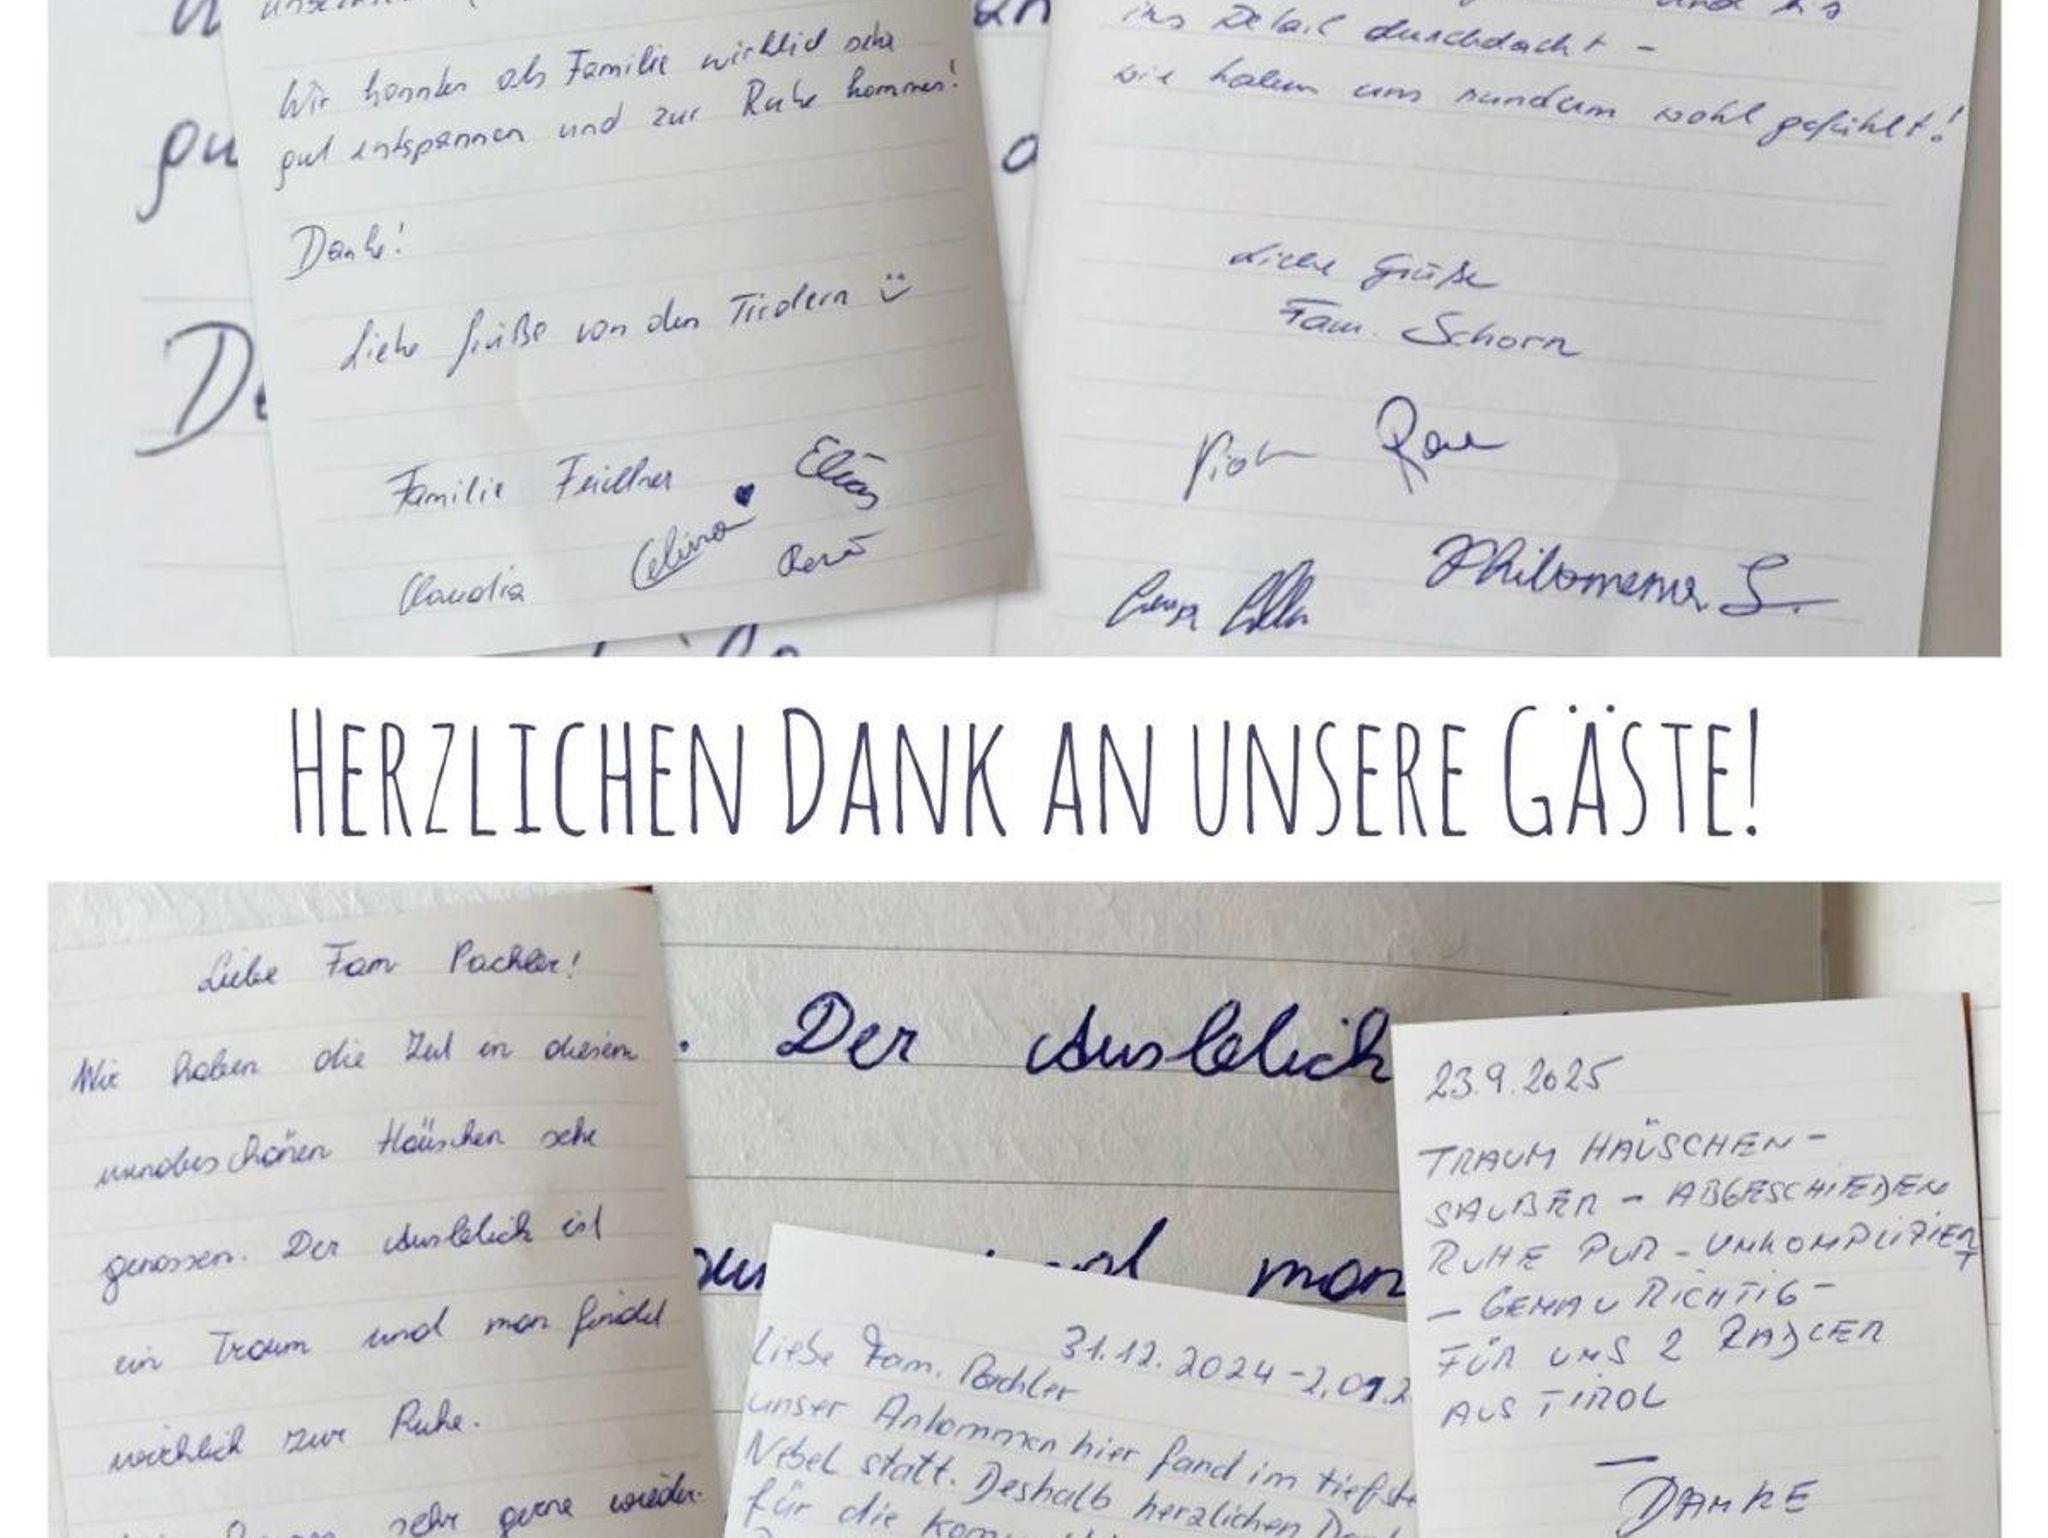 Wir konnten als Familie wirklich sehr
gut entspannen und zur Ruhe kommen!
Danke!
Liebe Grüße von den Tirolern
Familie Feichtner
Elias
Celina ♥
Claudia
René
ins Detail durchdacht -
wir haben uns rundum wohl gefühlt!
Liebe Grüße
Fam. Schorn
Philomena S.
HERZLICHEN DANK AN UNSERE GÄSTE!
Liebe Fam Pachler!
Wir haben die Zeit in diesem
wunderschönen Häuschen sehr
genossen. Der Ausblick ist
ein Traum und man findet
wirklich zur Ruhe.
sehr gerne wieder.
. Der Ausblick
man
31.12.2024-2.01.2
Liebe Fam. Pachler
unser Ankommen hier fand im tiefste
Nebel statt. Deshalb herzlichen Dank
für die
23.9.2025
TRAUM HÄUSCHEN -
SAUBER - ABGESCHIEDEN
RUHE PUR - UNKOMPLIZIERT
- GENAU RICHTIG -
FÜR UNS 2 RADLER
AUS TIROL
DANKE